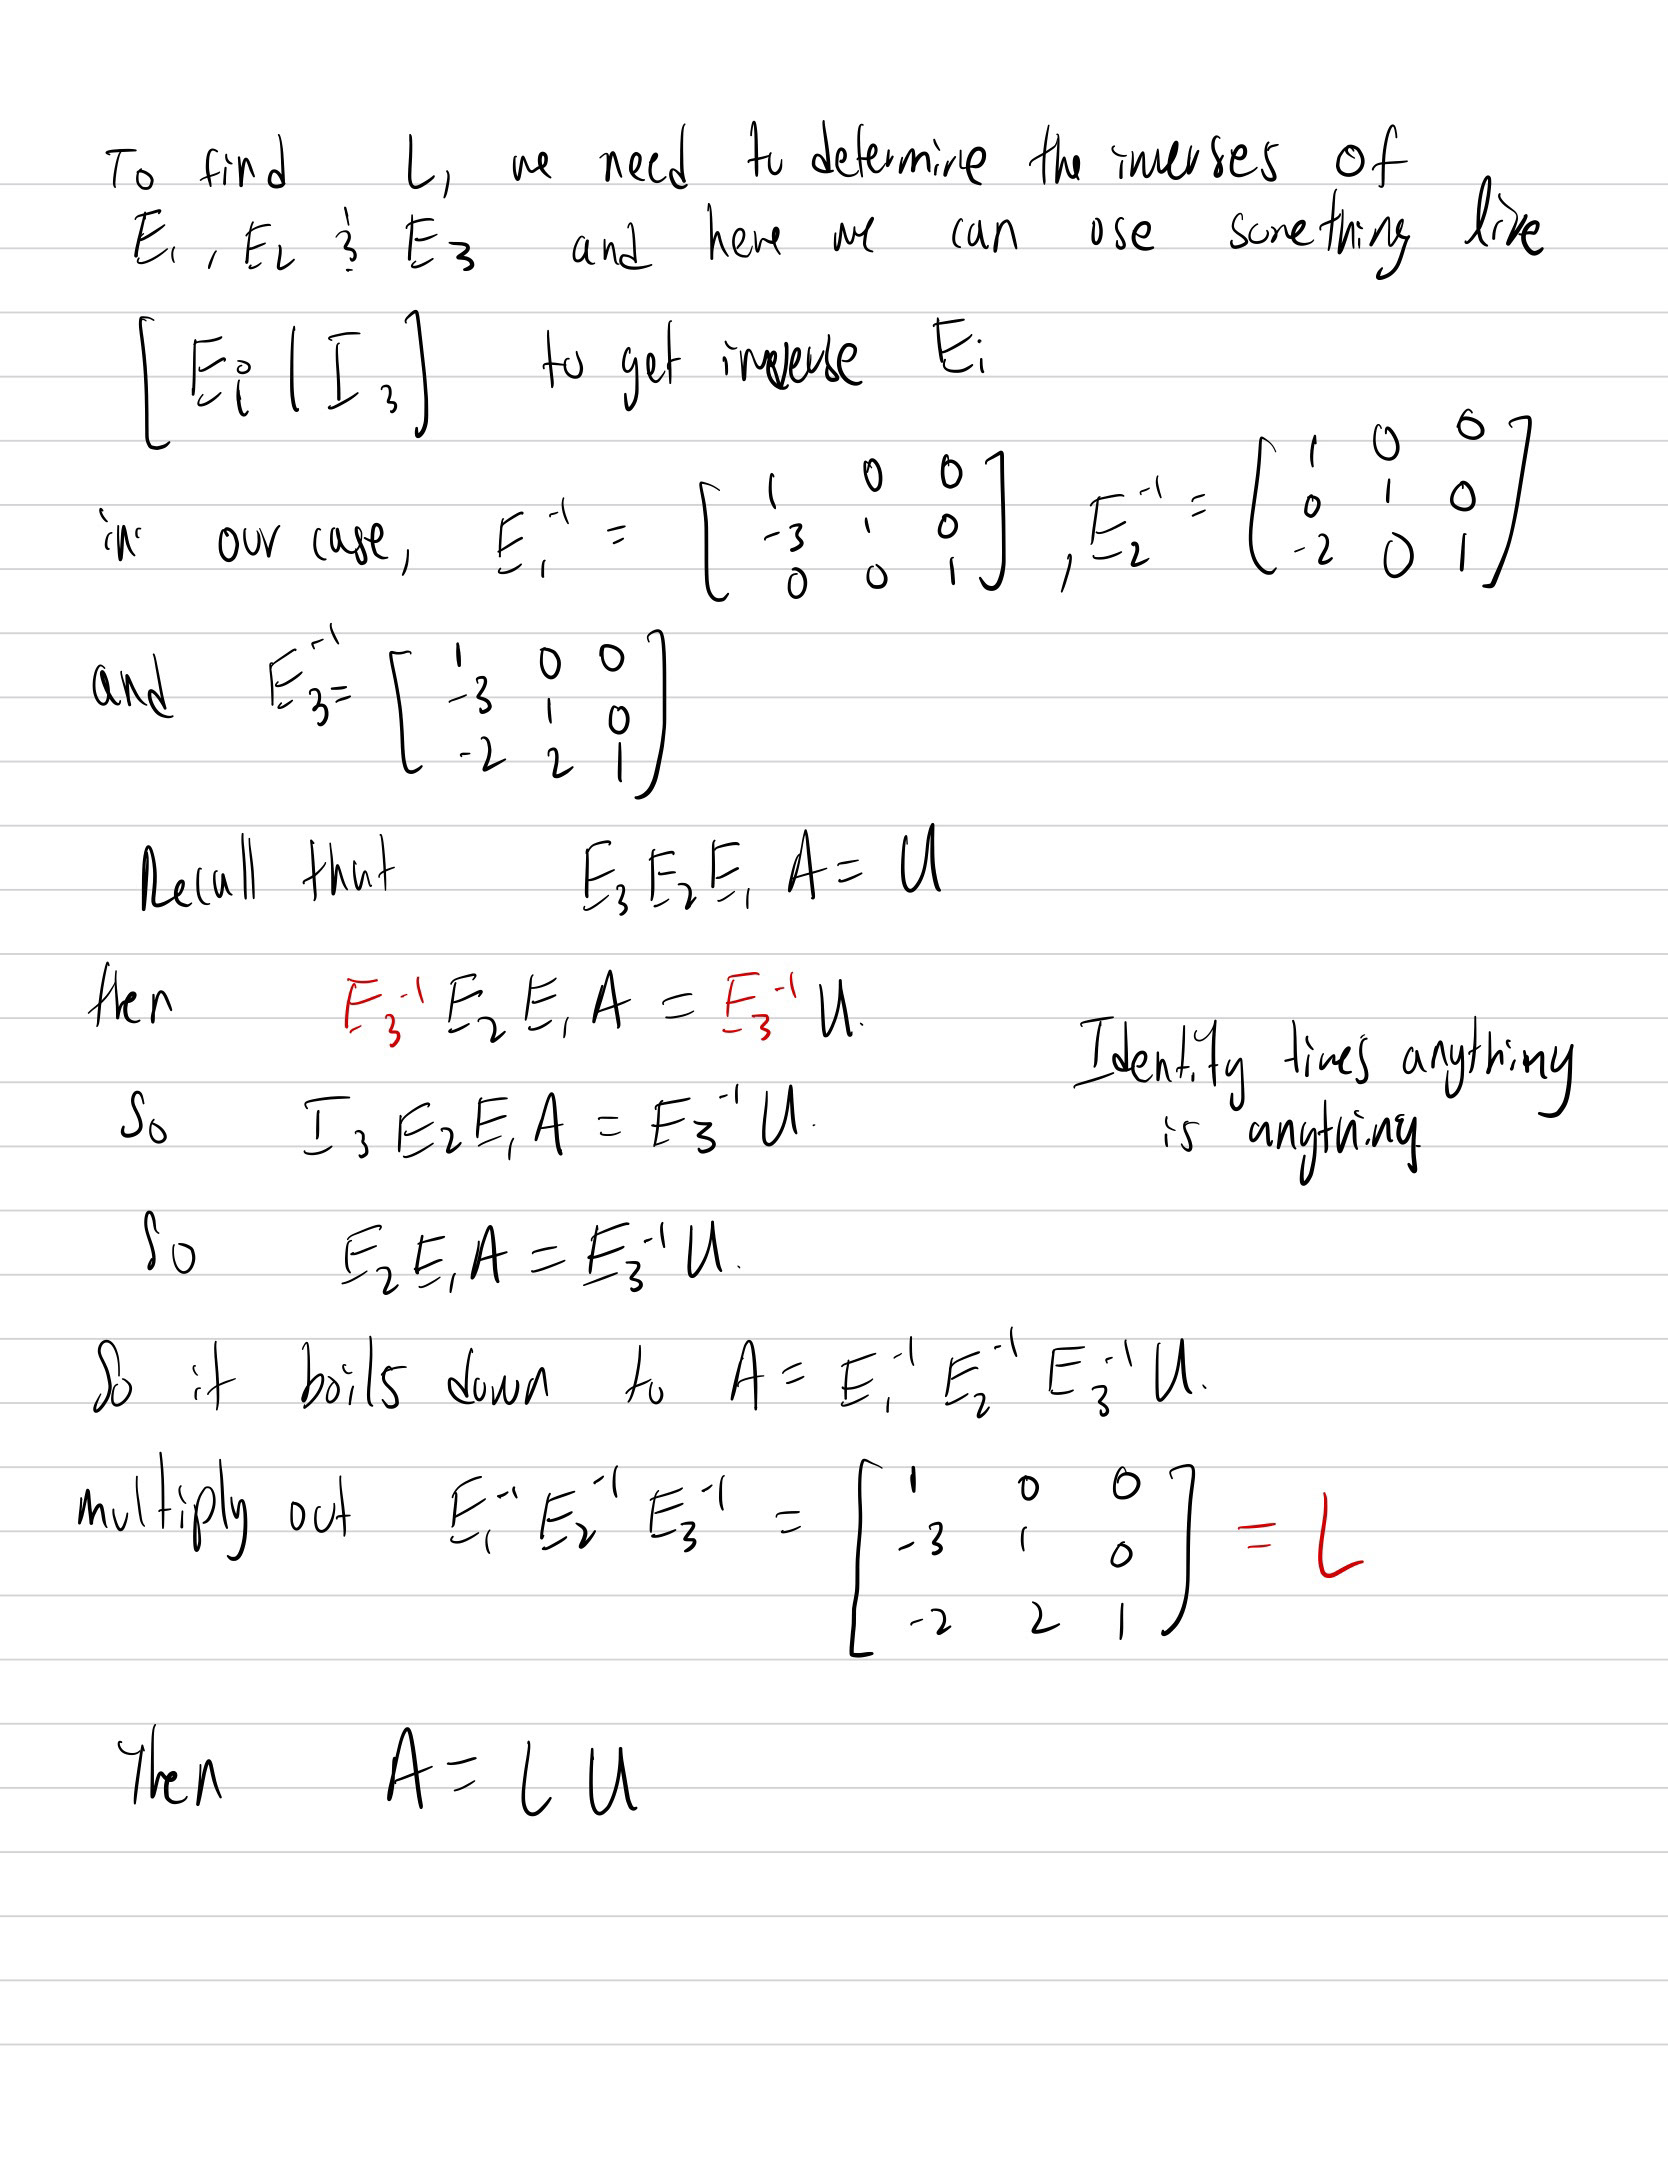 To find L, we need to determine the inverses of
E₁, E₂ & E₃ and here we can use something like
[Eᵢ | I₃] to get inverse Eᵢ
in our case, E₁⁻¹ = [1 0 0; -3 1 0; 0 0 1], E₂⁻¹ = [1 0 0; 0 1 0; -2 0 1]
and E₃⁻¹ = [1 0 0; -3 1 0; -2 2 1]
Recall that E₃E₂E₁A = U
then E₃⁻¹E₂E₁A = E₃⁻¹U.
Identity times anything
is anything
So I₃E₂E₁A = E₃⁻¹U.
So E₂E₁A = E₃⁻¹U.
So it boils down to A = E₁⁻¹E₂⁻¹E₃⁻¹U.
multiply out E₁⁻¹E₂⁻¹E₃⁻¹ = [1 0 0; -3 1 0; -2 2 1] = L
Then A = LU